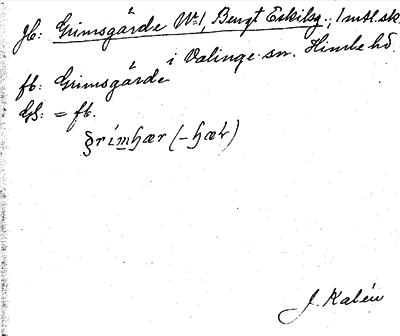 Jb: Grimsgärde No 1, Bengt Eskilsg., 1 mtl. sk.
i Valinge sn. Himle hd.
fb: Grimsgärde
Uf. = fb.
grímhær (-hæt)
J. Kalén